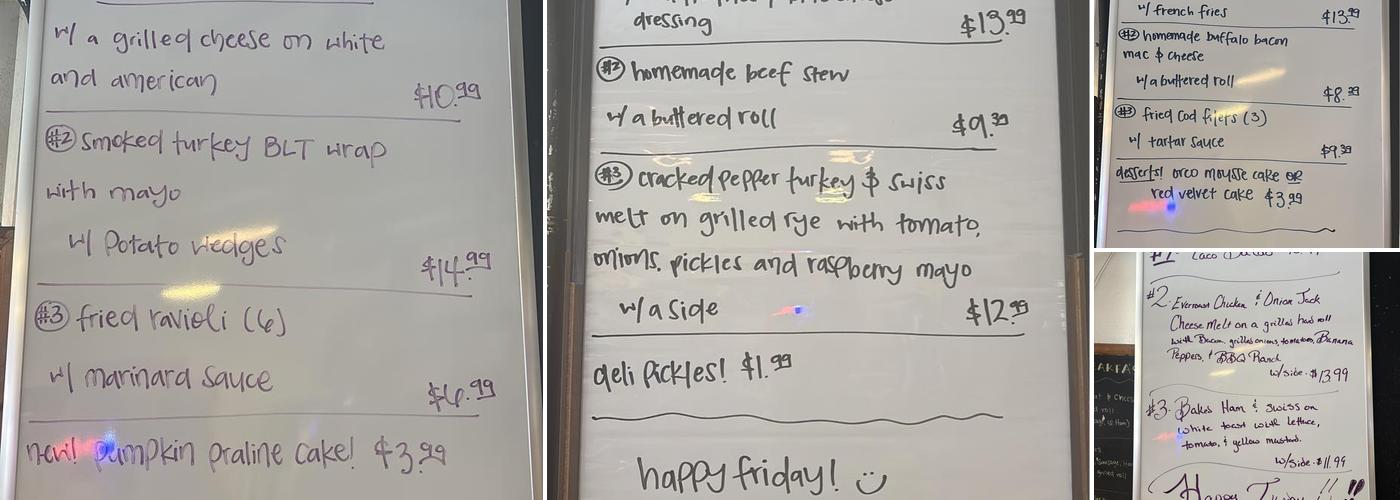 w/ a grilled cheese on white
and american
$10.99
#2 smoked turkey BLT wrap
with mayo
w/ potato wedges
$14.99
#3 fried ravioli (6)
w/ marinara sauce
$6.99
new! pumpkin praline cake! $3.99
dressing $13.99
#2 homemade beef stew
w/ a buttered roll $9.39
#3 cracked pepper turkey & swiss
melt on grilled rye with tomato,
onions, pickles and raspberry mayo
w/ a side $12.99
deli pickles! $1.99
happy friday!
w/ french fries $13.99
#2 homemade buffalo bacon
mac & cheese
w/ a buttered roll $8.39
#3 fried cod filets (3)
w/ tartar sauce $9.39
desserts! oreo mousse cake OR
red velvet cake $3.99
#2. Everroast Chicken & Onion Jack
Cheese Melt on a grilled hard roll
with Bacon, grilled onions, tomatoes, Banana
Peppers, & BBQ Ranch
w/side - $13.99
#3. Baked Ham & Swiss on
white toast with lettuce,
tomato, & yellow mustard.
w/side - $11.99